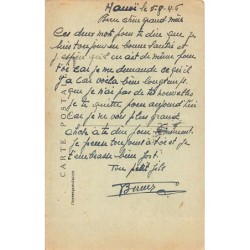 Hanoï le 5.9.46
Bien chère grand mère
Ces deux mots pour te dire que je
suis toujour en bonne santée et
j'espère qu'il en ait de même pour
toi car je me demande ce qu'il
y a car voila bien longtemp
que j'ai pas de tes nouvelles
je te quitte pour aujourd'hui
car je ne vois plus grand
chose a te dire pour
je pense toujour a toi et je
t'embrasse bien fort
Ton petit fils
CARTE POSTALE
Correspondance